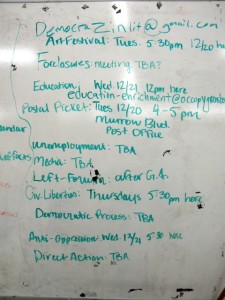 DemocraZinlit@gmail.com
Art Festival: Tues. 5:30pm 12/20 her
Foreclosures: meeting TBA?
Education: Wed 12/21 12pm here
education-enrichment@occupy
Postal Picket: Tues 12/20 4-5pm
Murrow Blvd.
Post Office
Unemployment: TBA
Media: TBA
Left-Forum: after G.A.
Civ. Liberties: Thursdays 5:30pm here
Democratic Process: TBA
Anti-Oppression: Wed 12/21 5:30
Direct Action: TBA